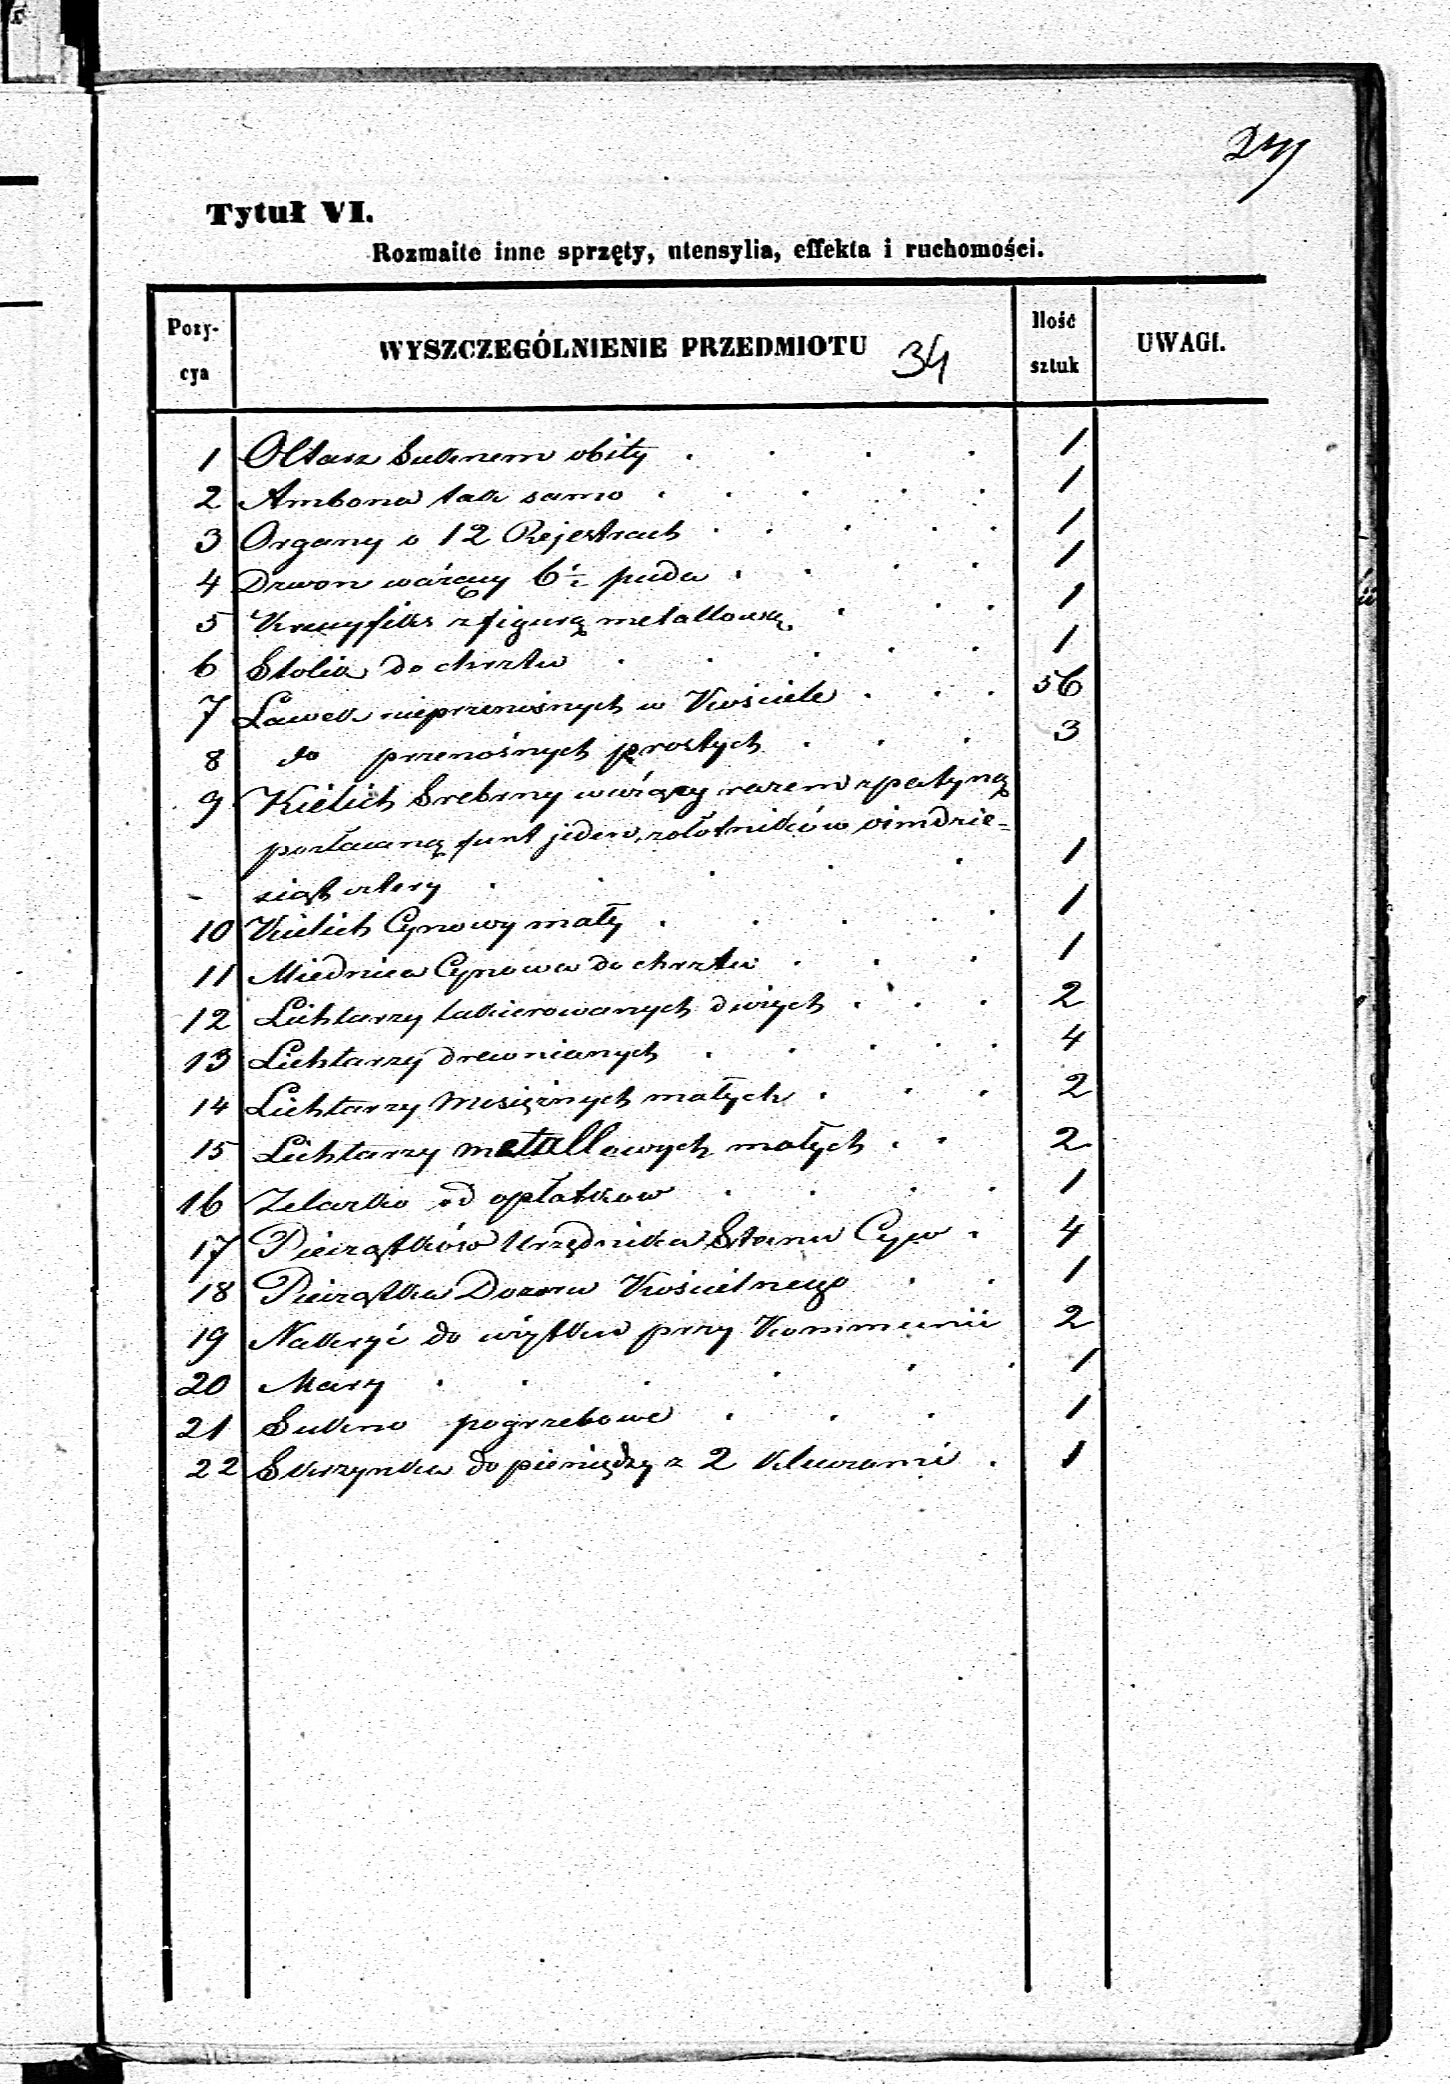 Tytuł VI.
Rozmaite inne sprzęty, utensylia, effekta i ruchomości.
Pozycya WYSZCZEGÓLNIENIE PRZEDMIOTU 34 Ilość sztuk UWAGI.
1 Ołtarz Suknem obity . . . . 1
2 Ambona tak samo . . . . . 1
3 Organy o 12 Rejestrach . . . . . 1
4 Dzwon ważący 6½ puda . . . . 1
5 Krucyfiks z figurą metallową . . . 1
6 Stolik do chrztu . . . . . 1
7 Ławek nieprzenośnych w Kościele . . . 56
8 do przenośnych prostych . . . 3
9 Kielich Srebrny ważący razem z patyną
pozłacaną funt jeden, zołotników ośmdzie=
siąt cztery . . . . . 1
10 Kielich Cynowy mały . . . . . 1
11 Miednica Cynowa do chrztu . . . 1
12 Lichtarzy lakierowanych dużych . . . 2
13 Lichtarzy drewnianych . . . . . 4
14 Lichtarzy Mosiężnych małych . . . 2
15 Lichtarzy metallowych małych . . 2
16 Żelazko od opłatkow . . . . 1
17 Pieczątków Urzędnika Stanu Cyw . 4
18 Pieczątka Dozoru Kościelnego . . 1
19 Nakryć do użytku przy Kommunii 2
20 Mary . . . . . . 1
21 Sukno pogrzebowe . . . 1
22 Skrzynka do pieniędzy z 2 kluczami . 1